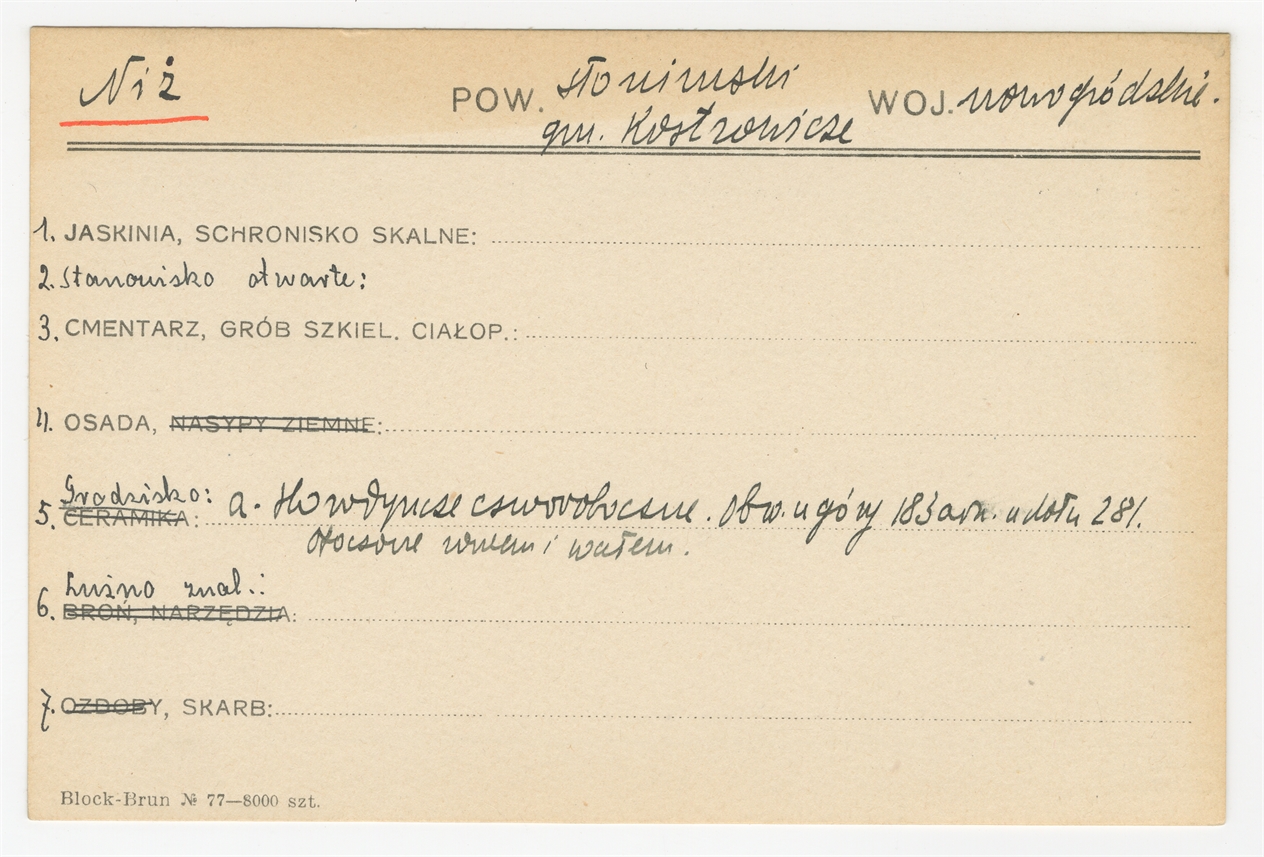 Niż
POW. słonimski WOJ. nowogródzkie.
gm. Kostrowicze
1. JASKINIA, SCHRONISKO SKALNE:
2. Stanowisko otwarte:
3. CMENTARZ, GRÓB SZKIEL. CIAŁOP.:
4. OSADA, NASYPY ZIEMNE:
Grodzisko: a. Horodyszcze czworoboczne. Obw. u góry 183 u dołu 281.
5. CERAMIKA:
Otoczone rowem i wałem.
Luźno znal.:
6. BROŃ, NARZĘDZIA:
7. OZDOBY, SKARB:
Block-Brun № 77—8000 szt.